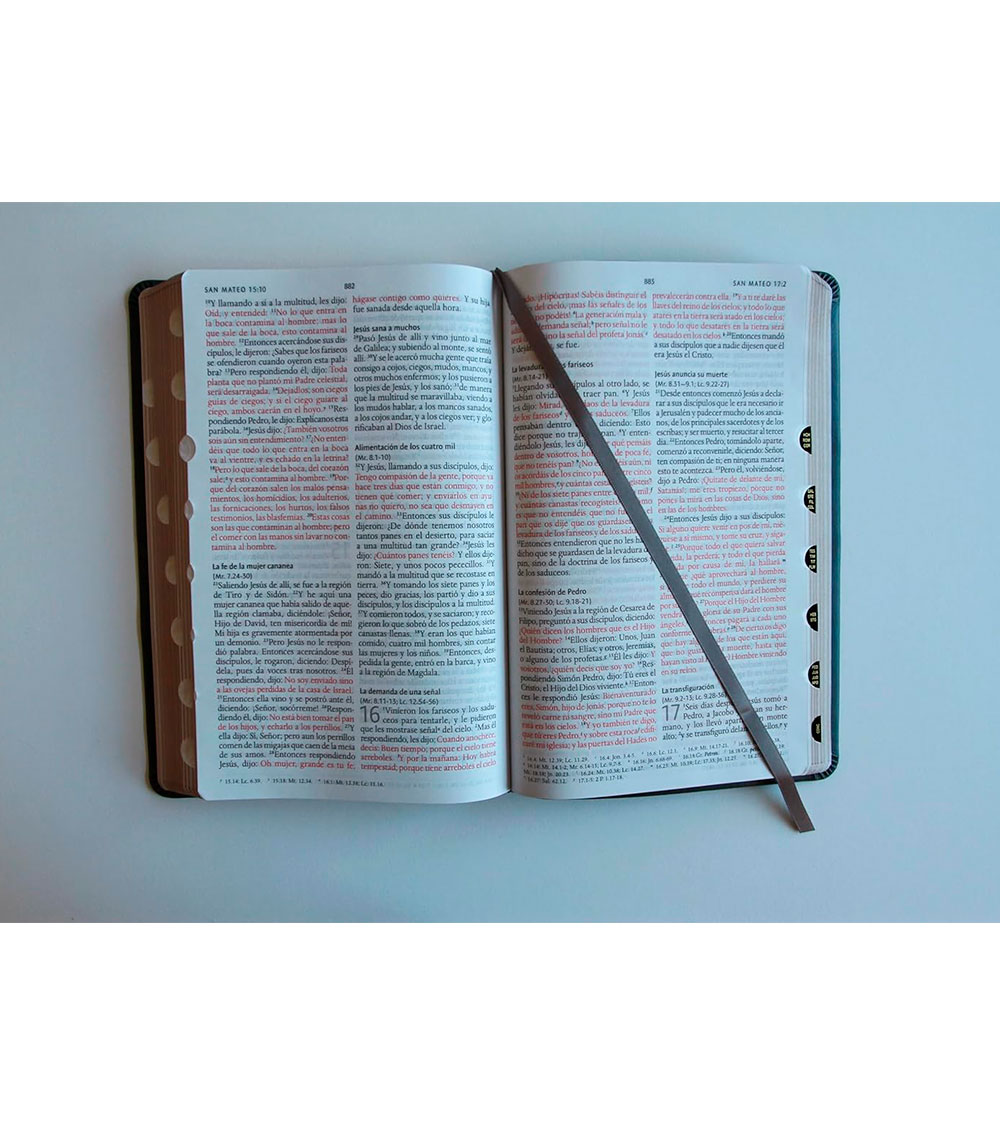 SAN MATEO 15:10
882
¹⁰Y llamando a sí a la multitud, les dijo:
Oíd, y entended: ¹¹No lo que entra en
la boca contamina al hombre; mas lo
que sale de la boca, esto contamina al
hombre. ¹²Entonces acercándose sus dis-
cípulos, le dijeron: ¿Sabes que los fariseos
se ofendieron cuando oyeron esta pala-
bra? ¹³Pero respondiendo él, dijo: Toda
planta que no plantó mi Padre celestial,
será desarraigada. ¹⁴Dejadlos; son ciegos
guías de ciegos; y si el ciego guiare al
ciego, ambos caerán en el hoyo.ᵃ ¹⁵Res-
pondiendo Pedro, le dijo: Explícanos esta
parábola. ¹⁶Jesús dijo: ¿También vosotros
sois aún sin entendimiento? ¹⁷¿No enten-
déis que todo lo que entra en la boca
va al vientre, y es echado en la letrina?
¹⁸Pero lo que sale de la boca, del corazón
sale; y esto contamina al hombre. ¹⁹Por-
que del corazón salen los malos pensa-
mientos, los homicidios, los adulterios,
las fornicaciones, los hurtos, los falsos
testimonios, las blasfemias. ²⁰Estas cosas
son las que contaminan al hombre; pero
el comer con las manos sin lavar no con-
tamina al hombre.
La fe de la mujer cananea
(Mr. 7.24-30)
²¹Saliendo Jesús de allí, se fue a la región
de Tiro y de Sidón. ²²Y he aquí una
mujer cananea que había salido de aque-
lla región clamaba, diciéndole: ¡Señor,
Hijo de David, ten misericordia de mí!
Mi hija es gravemente atormentada por
un demonio. ²³Pero Jesús no le respon-
dió palabra. Entonces acercándose sus
discípulos, le rogaron, diciendo: Despí-
dela, pues da voces tras nosotros. ²⁴Él
respondiendo, dijo: No soy enviado sino
a las ovejas perdidas de la casa de Israel.
²⁵Entonces ella vino y se postró ante él,
diciendo: ¡Señor, socórreme! ²⁶Respon-
diendo él, dijo: No está bien tomar el pan
de los hijos, y echarlo a los perrillos. ²⁷Y
ella dijo: Sí, Señor; pero aun los perrillos
comen de las migajas que caen de la mesa
de sus amos. ²⁸Entonces respondiendo
Jesús, dijo: Oh mujer, grande es tu fe;
hágase contigo como quieres. Y su hija
fue sanada desde aquella hora.
Jesús sana a muchos
²⁹Pasó Jesús de allí y vino junto al mar
de Galilea; y subiendo al monte, se sentó
allí. ³⁰Y se le acercó mucha gente que traía
consigo a cojos, ciegos, mudos, mancos, y
otros muchos enfermos; y los pusieron a
los pies de Jesús, y los sanó; ³¹de manera
que la multitud se maravillaba, viendo a
los mudos hablar, a los mancos sanados,
a los cojos andar, y a los ciegos ver; y glo-
rificaban al Dios de Israel.
Alimentación de los cuatro mil
(Mr. 8.1-10)
³²Y Jesús, llamando a sus discípulos, dijo:
Tengo compasión de la gente, porque ya
hace tres días que están conmigo, y no
tienen qué comer; y enviarlos en ayu-
nas no quiero, no sea que desmayen en
el camino. ³³Entonces sus discípulos le
dijeron: ¿De dónde tenemos nosotros
tantos panes en el desierto, para saciar
a una multitud tan grande? ³⁴Jesús les
dijo: ¿Cuántos panes tenéis? Y ellos dije-
ron: Siete, y unos pocos pececillos. ³⁵Y
mandó a la multitud que se recostase en
tierra. ³⁶Y tomando los siete panes y los
peces, dio gracias, los partió y dio a sus
discípulos, y los discípulos a la multitud.
³⁷Y comieron todos, y se saciaron; y reco-
gieron lo que sobró de los pedazos, siete
canastas llenas. ³⁸Y eran los que habían
comido, cuatro mil hombres, sin contar
las mujeres y los niños. ³⁹Entonces, des-
pedida la gente, entró en la barca, y vino
a la región de Magdala.
La demanda de una señal
(Mr. 8.11-13; Lc. 12.54-56)
16 ¹Vinieron los fariseos y los sadu-
ceos para tentarle, y le pidieron
que les mostrase señal del cielo. ²Mas él
respondiendo, les dijo: Cuando anochece,
decís: Buen tiempo; porque el cielo tiene
arreboles. ³Y por la mañana: Hoy habrá
tempestad; porque tiene arreboles el cielo
15.14: Lc. 6.39. 15.18: Mt. 12.34. 16.1: Mt. 12.38; Lc. 11.16.
885
SAN MATEO 17:2
¡Hipócritas! Sabéis distinguir el
del cielo, ¡mas las señales de los
no podéis! ⁴La generación mala y
demanda señal; pero señal no le
sino la señal del profeta Jonás.
Y dejándolos, se fue.
La levadura fariseos
(Mr. 8.14-21)
⁵Llegando discípulos al otro lado, se
habían olvidado traer pan. ⁶Y Jesús
les dijo: Mirad, guardaos de la levadura
de los fariseos saduceos. ⁷Ellos
pensaban dentro diciendo: Esto
dice porque no trajimos pan. ⁸Y enten-
diéndolo Jesús, les dijo: ¿Por qué pensáis
dentro de vosotros, hombres de poca fe,
que no tenéis pan? ⁹¿No entendéis aún, ni
os acordáis de los cinco panes entre cinco
mil hombres, y cuántas cestas recogisteis?
¹⁰¿Ni de los siete panes entre cuatro mil,
y cuántas canastas recogisteis? ¹¹¿Cómo
es que no entendéis que no fue por el
pan que os dije que os guardaseis de la
levadura de los fariseos y de los saduceos?
¹²Entonces entendieron que no les había
dicho que se guardasen de la levadura del
pan, sino de la doctrina de los fariseos y
de los saduceos.
La confesión de Pedro
(Mr. 8.27-30; Lc. 9.18-21)
¹³Viniendo Jesús a la región de Cesarea de
Filipo, preguntó a sus discípulos, diciendo:
¿Quién dicen los hombres que es el Hijo
del Hombre? ¹⁴Ellos dijeron: Unos, Juan
el Bautista; otros, Elías; y otros, Jeremías,
o alguno de los profetas. ¹⁵Él les dijo: Y
vosotros, ¿quién decís que soy yo? ¹⁶Res-
pondiendo Simón Pedro, dijo: Tú eres el
Cristo, el Hijo del Dios viviente. ¹⁷Enton-
ces le respondió Jesús: Bienaventurado
eres, Simón, hijo de Jonás, porque no te lo
reveló carne ni sangre, sino mi Padre que
está en los cielos. ¹⁸Y yo también te digo,
que tú eres Pedro, y sobre esta roca edifi-
caré mi iglesia; y las puertas del Hades no
prevalecerán contra ella. ¹⁹Y a ti te daré las
llaves del reino de los cielos; y todo lo que
atares en la tierra será atado en los cielos;
y todo lo que desatares en la tierra será
desatado en los cielos. ²⁰Entonces mandó
a sus discípulos que a nadie dijesen que él
era Jesús el Cristo.
Jesús anuncia su muerte
(Mr. 8.31—9.1; Lc. 9.22-27)
²¹Desde entonces comenzó Jesús a decla-
rar a sus discípulos que le era necesario ir
a Jerusalén y padecer mucho de los ancia-
nos, de los principales sacerdotes y de los
escribas; y ser muerto, y resucitar al tercer
día. ²²Entonces Pedro, tomándolo aparte,
comenzó a reconvenirle, diciendo: Señor,
ten compasión de ti; en ninguna manera
esto te acontezca. ²³Pero él, volviéndose,
dijo a Pedro: ¡Quítate de delante de mí,
Satanás!; me eres tropiezo, porque no
pones la mira en las cosas de Dios, sino
en las de los hombres.
²⁴Entonces Jesús dijo a sus discípulos:
Si alguno quiere venir en pos de mí, nié-
guese a sí mismo, y tome su cruz, y síga-
me. ²⁵Porque todo el que quiera salvar
su vida, la perderá; y todo el que pierda
su vida por causa de mí, la hallará.
²⁶Porque ¿qué aprovechará al hombre,
si ganare todo el mundo, y perdiere su
alma? ¿O qué recompensa dará el hombre
por su alma? ²⁷Porque el Hijo del Hombre
vendrá en la gloria de su Padre con sus
ángeles, y entonces pagará a cada uno
conforme a sus obras. ²⁸De cierto os digo
que hay algunos de los que están aquí,
que no gustarán la muerte, hasta que
hayan visto al Hijo del Hombre viniendo
en su reino.
La transfiguración
(Mr. 9.2-13; Lc. 9.28-36)
17 ¹Seis días después, Jesús tomó a
Pedro, a Jacobo y a Juan su her-
mano, y los llevó aparte a un monte
alto; ²y se transfiguró delante de ellos, y